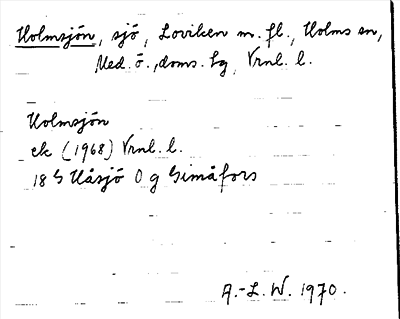 Holmsjön, sjö, Loviken m. fl., Holms sn,
Med. ö., doms. lg, Vrnl. l.
Holmsjön
ek (1968) Vrnl. l.
18 G Håsjö 0 g Gimåfors
A.-L. W. 1970.